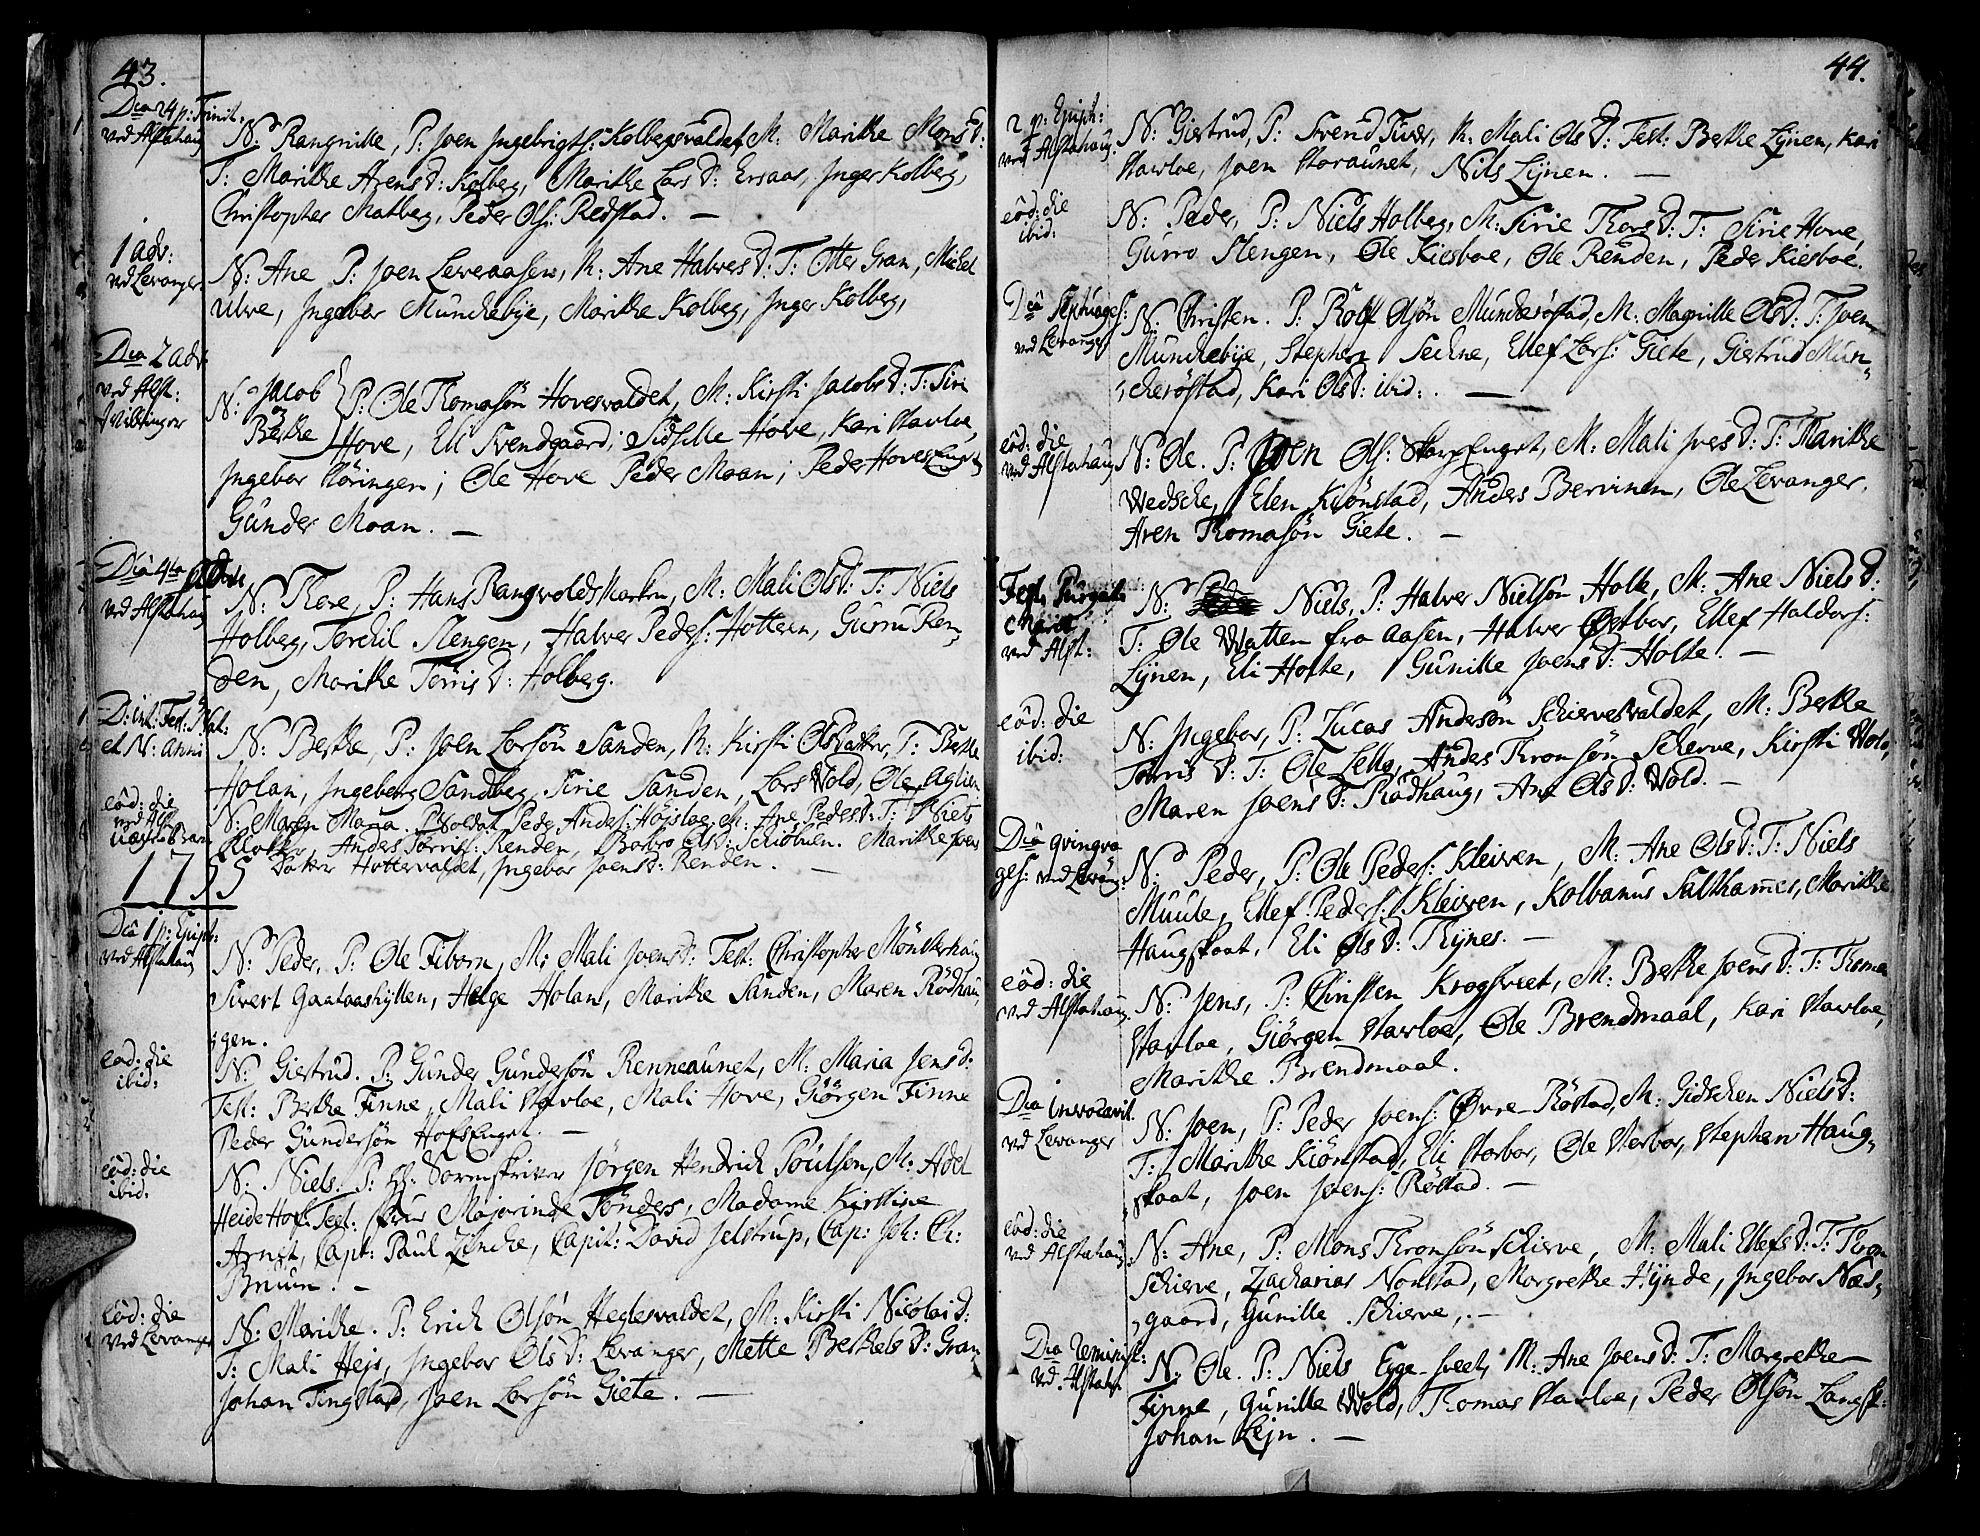 43.
Dca 24 p: Trinit:
ved Alstahaug
N: Rangnille, P: Joen Ingebrigts: Kolbergsvaldet, M: Maritke Mons D:
T: Maritke Arens D: Kolberg, Maritke Lars D: Ersaas, Inger Kolberg,
Christopher Matberg, Peder Ols: Redstad. —
1 adv:
ved Levanger
N: Ane P: Joen Leveraasen, M: Ane Halvors D: T: Otter Gran, Michel
Ulve, Ingebor Munckebye, Maritke Kolberg, Inger Kolberg,
Dca 2 adv:
ved Alst:
Tvillinger
N: Jacob
og
Berthe
P: Ole Thomasön Hovesvaldet, M: Kirsti Jacobs D: T: Siri
Hove, Eli Svendgaard, Sidselle Hove, Kari Stavloe,
Ingebor Köringen; Ole Hove Peder Moan; Peder Hoves Enget
Gunder Moan. —
Dca 4ta Adv:
ved Alstahaug
N: Thore, P: Hans Rangvolds Marken, M: Mali Ols D: T: Niels
Holberg, Torchil Slengen, Halver Peders: Hottern, Gurru Ren-
den, Maritke Törris D: Holberg.
D: int: Fest: Nat:
et N: anni
N: Berthe, P: Joen Larsön Sanden, M: Kirsti Ols Datter, T: Berthe
Holan, Ingeberg Sandberg, Sirie Sanden, Lars Wold, Ole Aglien
eöd: die
ved Alst
uægte Barn
N: Maren Maria. P: Soldat Peder Anders: Höjsloe, M: Ane Peders D: T: Niels
Klocker, Anders Törris: Renden, Barbro Ols D: Schiölnen. Maritke Joens
Datter Hottervaldet, Ingebor Joens D: Renden. —
1755
Dca 1 p: Epiph:
ved Alstahaug
N: Peder, P: Ole Fiborn, M: Mali Joens D: Test: Christopher Mönsterhaug
Sivert Gaataashyllen, Helge Holan, Maritke Sanden, Maren Rödhau-
gen.
eod: die
ibid:
N: Giertrud. P: Gunder Gundersön Renneaunet, M: Maria Jens D:
Test: Berthe Finne, Mali Stavloe, Mali Hove, Giörgen Finne
Peder Gundersön Hofs Enget. —
eöd: die
ibid:
N: Niels. P: Hr: Sorenskriver Jörgen Hendrich Poulson, M: Adel
Heide Hof: Test: Frue Majorinde Tönder, Madame Kirstine
Arnet, Capt: Paul Lincke, Capit: David Jelstrup, Cap: Joh: Ch:
Bruun. —
eöd: die
ved Levanger
N: Maritke. P: Erich Olsön Heglesvaldet, M: Kirsti Nicolai D:
T: Mali Hejs, Ingebor Ols D: Levanger, Mette Berthels D: Gran
Johan Tingstad, Joen Larsön Giete. —
44.
2 p: Epiph:
ved Alstahaug:
N: Giertrud, P: Svend Tuer, M: Mali Ols D: Test: Berthe Lÿnen, Kari
Stavloe, Joen Storaunet, Nils Lÿnen. —
eöd: die
ibid:
N: Peder, P: Niels Holberg, M: Sirie Thors D: T: Sirie Hove,
Gurro Slengen, Ole Kiesboe, Ole Renden, Peder Kiesboe.
Dca Septuages:
ved Levanger
N: Christen. P: Rolf Olsön Munckeröstad, M: Magnille Ols D: T: Joen
Munckebÿe, Stephen Seckne, Ellef Lars: Giete, Giertrud Mun-
ckeröstad, Kari Ols D: ibid: —
eöd: die
ved Alstahaug
N: Ole. P: Joen Ols: Skarp Enget, M: Mali Jvers D: T: Maritke
Wedsche, Elen Kiönstad, Anders Bervinen, Ole Levanger,
Aren Thomasön Giete. —
Fest: Purgat:
Mariæ
ved Alst:
N: Niels, P: Halver Nielsön Holte, M: Ane Niels D:
T: Ole Watten fra Aasen, Halver Östbor, Ellef Haldors:
Lÿnen, Eli Holte, Gunille Joens D: Holte. —
eöd: die
ibid:
N: Ingebor, P: Lucas Andersön Schiervesvaldet, M: Berthe
Törris D: T: Ole Lello, Anders Thronsön Schierve, Kirsti Wold,
Maren Joens D: Rödhaug, Ane Ols D: Wold. —
Dca qvinqva
ges: ved Levang:
N: Peder, P: Ole Peders: Kleiven, M: Ane Ols D: T: Niels
Muule, Ellef Peders: Kleiven, Kolbanus Salthamer, Maritke
Haugskaat, Eli Ols D: Thÿnes. —
eöd: die
ved Alstahaug.
N: Jens, P: Christen Krogsveet, M: Berthe Joens D: T: Thoma
Stavloe, Giörgen Stavloe, Ole Brendmaal, Kari Stavloe,
Maritke Brendmaal.
Dca invocavit.
ved Levanger
N: Joen, P: Peder Joens: Øvre-Röstad, M: Gidschen Niels D:
T: Maritke Kiönstad, Eli Storbor, Ole Storbor, Stephen Haug-
skaat, Joen Joens: Röstad. —
eöd: die
ved Alstahaug
N: Ane, P: Mons Thronsön Schierve, M: Mali Ellefs D: T: Thron
Schierve, Zacharias Nonstad, Margrethe Hÿnde, Ingebor Næs-
gaard, Gunille Schierve, —
Dca Reminisc:
ved Alstahau
N: Ole. P: Niels Egge-sveet, M: Ane Joens D: T: Margrethe
Finne, Gunille Wold, Thomas Stavloe, Peder Olsön Langst:
Johan Lejn. —